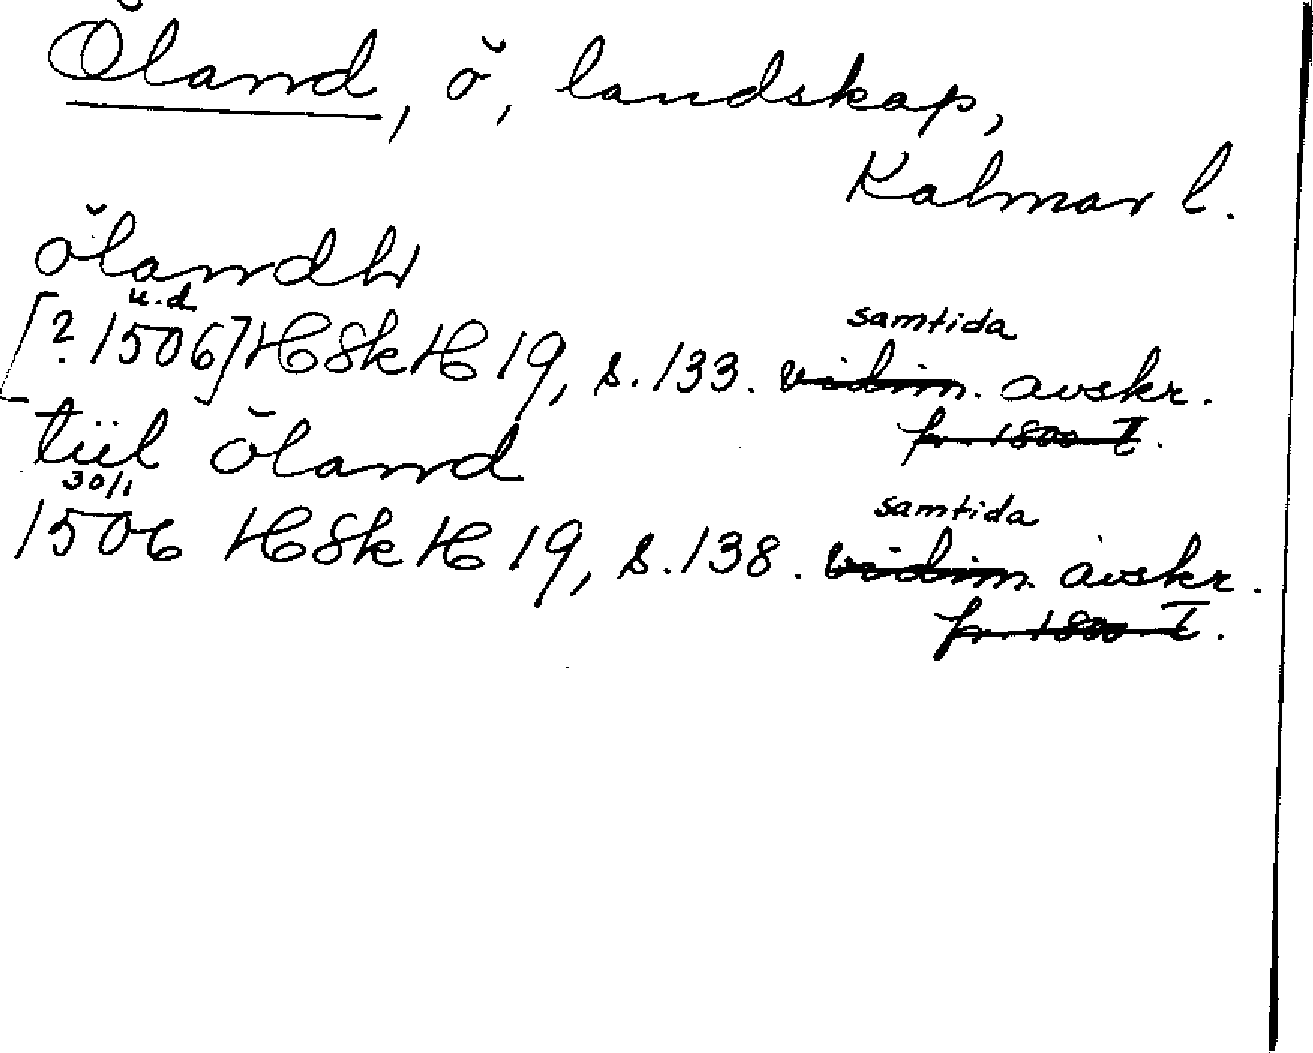 Öland, ö, landskap,
Kalmar l.
ölandh
u.d
[? 1506] HSkH 19, s. 133. vidim. avskr.
samtida
fr. 1800-t.
tiil öland
30/1
1506 HSkH 19, s. 138. vidim. avskr.
samtida
fr. 1800-t.